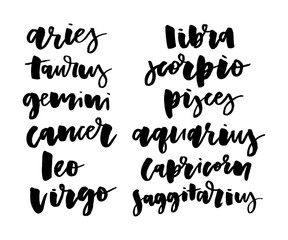 aries
taurus
gemini
cancer
leo
virgo
libra
scorpio
pisces
aquarius
capricorn
saggitarius